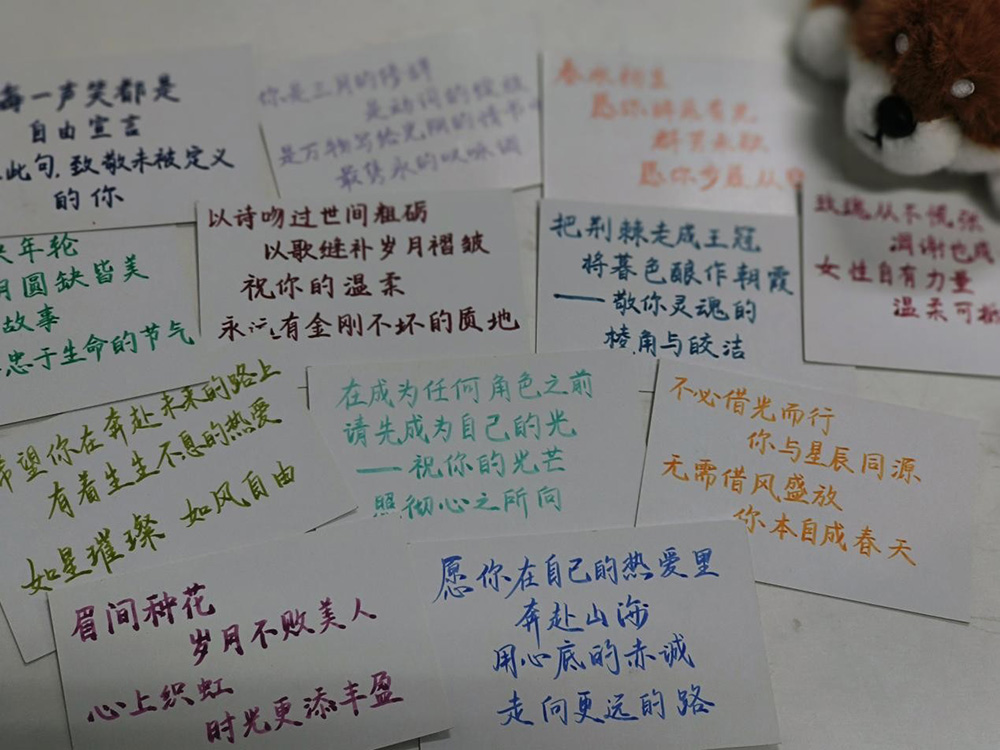 每一声笑都是
自由宣言
此句,致敬未被定义
的你
你是三月的修辞
是动词的绽放
是万物写给光阴的情书
最隽永的以咏调
春水初生
愿你
愿你步履从
年轮
月圆缺皆美
故事
忠于生命的节气
以诗吻过世间粗砺
以歌继补岁月褶皱
祝你的温柔
永远有金刚不坏的质地
把荆棘走成王冠
将暮色酿作朝霞
——敬你灵魂的
棱角与皎洁
玫瑰从不慌张
凋谢也成
女性自有力量
温柔可
希望你在奔赴未来的路上
有着生生不息的热爱
如星璀璨 如风自由
在成为任何角色之前
请先成为自己的光
——祝你的光芒
照彻心之所向
不必借光而行
你与星辰同源
无需借风盛放
你本自成春天
眉间种花
岁月不败美人
心上织虹
时光更添丰盈
愿你在自己的热爱里
奔赴山海
用心底的赤诚
走向更远的路